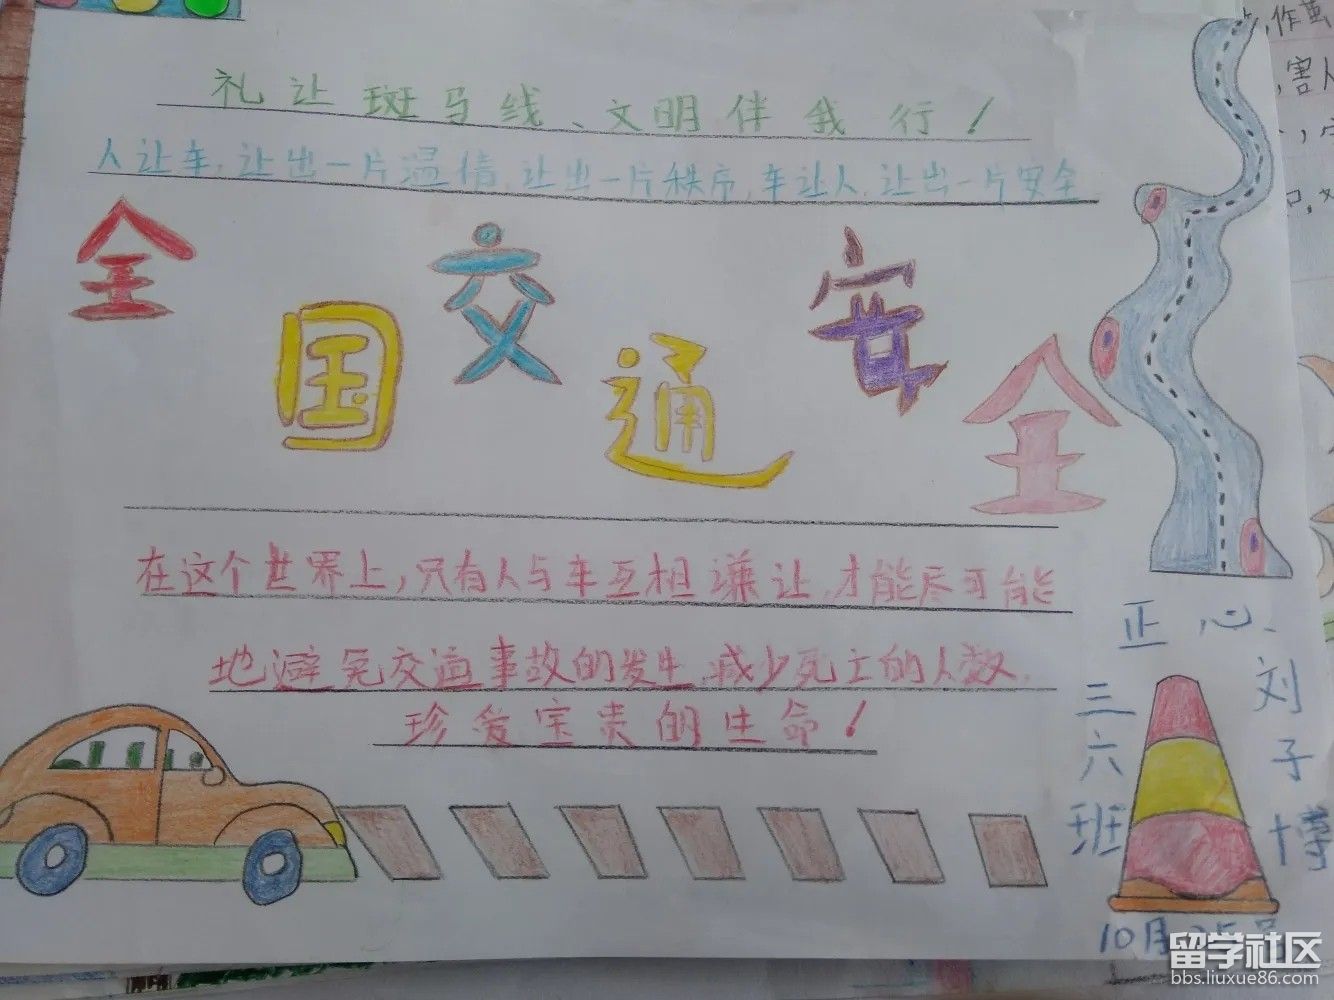 礼让斑马线、文明伴我行！
人让车,让出一片温情,让出一片秩序,车让人,让出一片安全
全国交通安全
在这个世界上,只有人与车互相谦让,才能尽可能
地避免交通事故的发生,减少死亡的人数,
珍爱宝贵的生命！
正心、
刘子博
三六班
10月25号
留学社区
bbs.liuxue86.com
害人